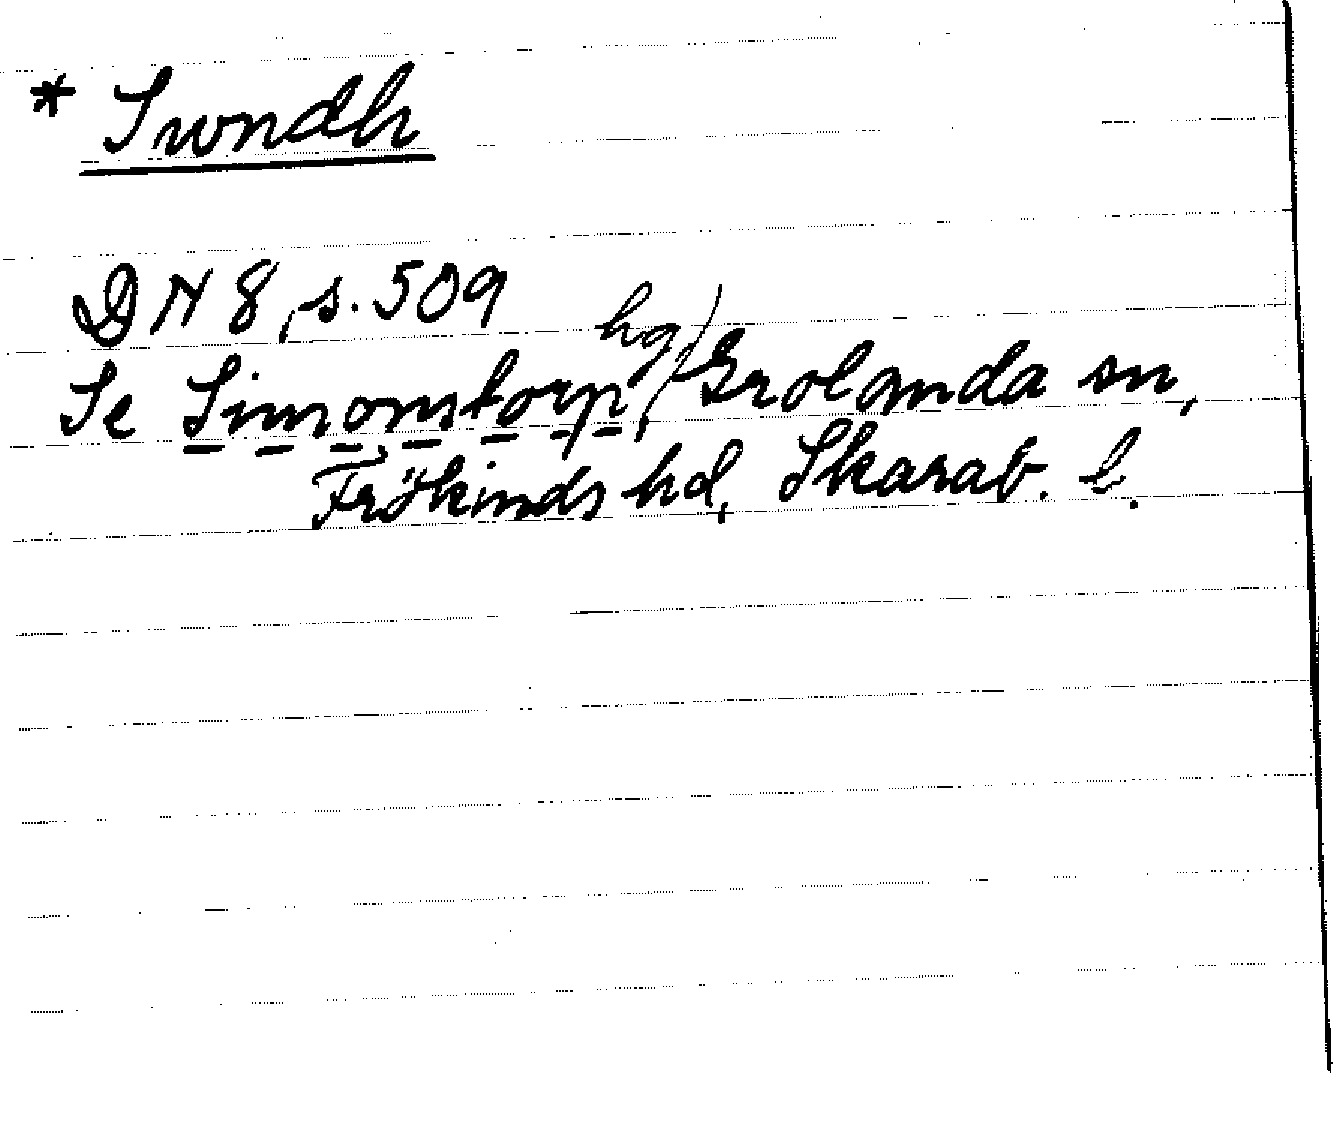 * Swndh
DN 8, s. 509
Se Simonstorp, hg, Grolanda sn,
Frökinds hd, Skarab. l.